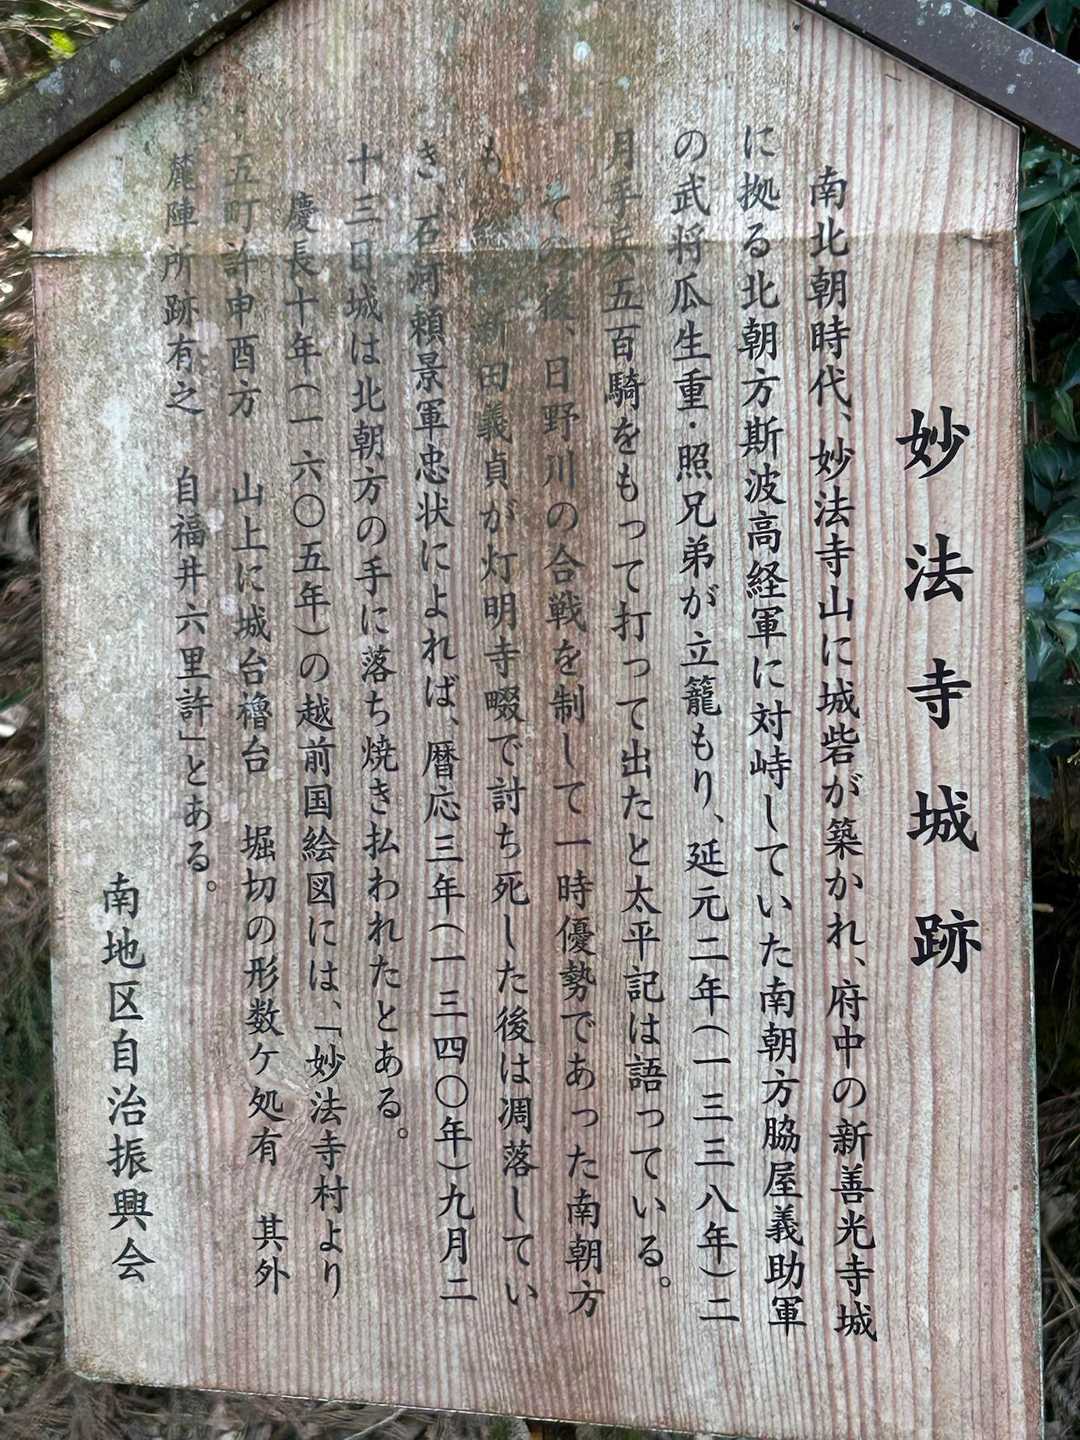 妙法寺城跡
南北朝時代、妙法寺山に城砦が築かれ、府中の新善光寺城
に拠る北朝方斯波高経軍に対峙していた南朝方脇屋義助軍
の武将瓜生重・照兄弟が立籠もり、延元二年(一三三八年)二
月手兵五百騎をもって打って出たと太平記は語っている。
その後、日野川の合戦を制して一時優勢であった南朝方
も、新田義貞が灯明寺畷で討ち死した後は凋落してい
き、石河頼景軍忠状によれば、暦応三年(一三四〇年)九月二
十三日城は北朝方の手に落ち焼き払われたとある。
慶長十年(一六〇五年)の越前国絵図には、「妙法寺村より
五町許申酉方 山上に城台櫓台 堀切の形数ケ処有 其外
麓陣所跡有之 自福井六里許」とある。
南地区自治振興会